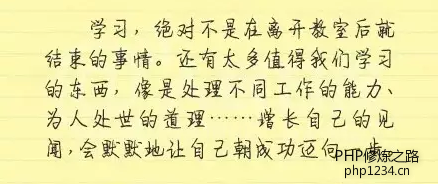 学习，绝对不是在离开教室后就
结束的事情。还有太多值得我们学习
的东西，像是处理不同工作的能力、
为人处世的道理……增长自己的见
闻，会默默地让自己朝成功迈向一步
PHP修炼之路
php1234.cn